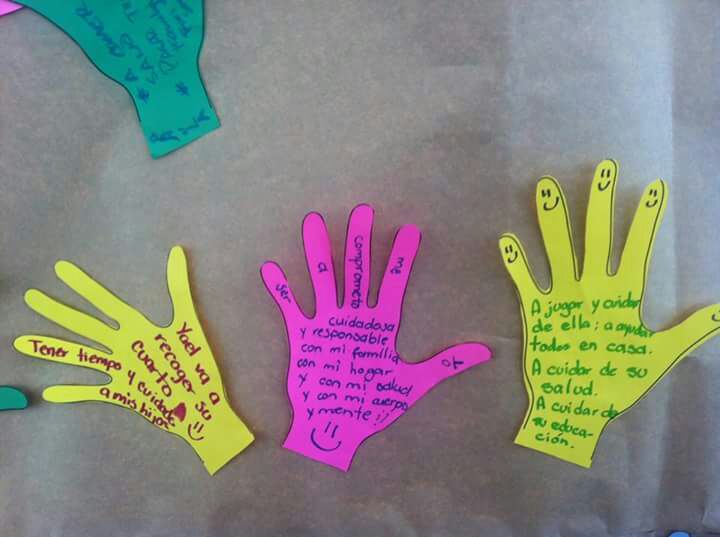 Yael va a
recoger su
cuarto
Tener tiempo
y cuidado
a mis hijos
Yo
me
comprometo
a
ser
cuidadosa
y responsable
con mi familia
con mi hogar
y con mi salud
y con mi cuerpo
y mente !!
A jugar y cuidar
de ella; a ayudar
todos en casa.
A cuidar de su
salud.
A cuidar de
su educa-
ción.